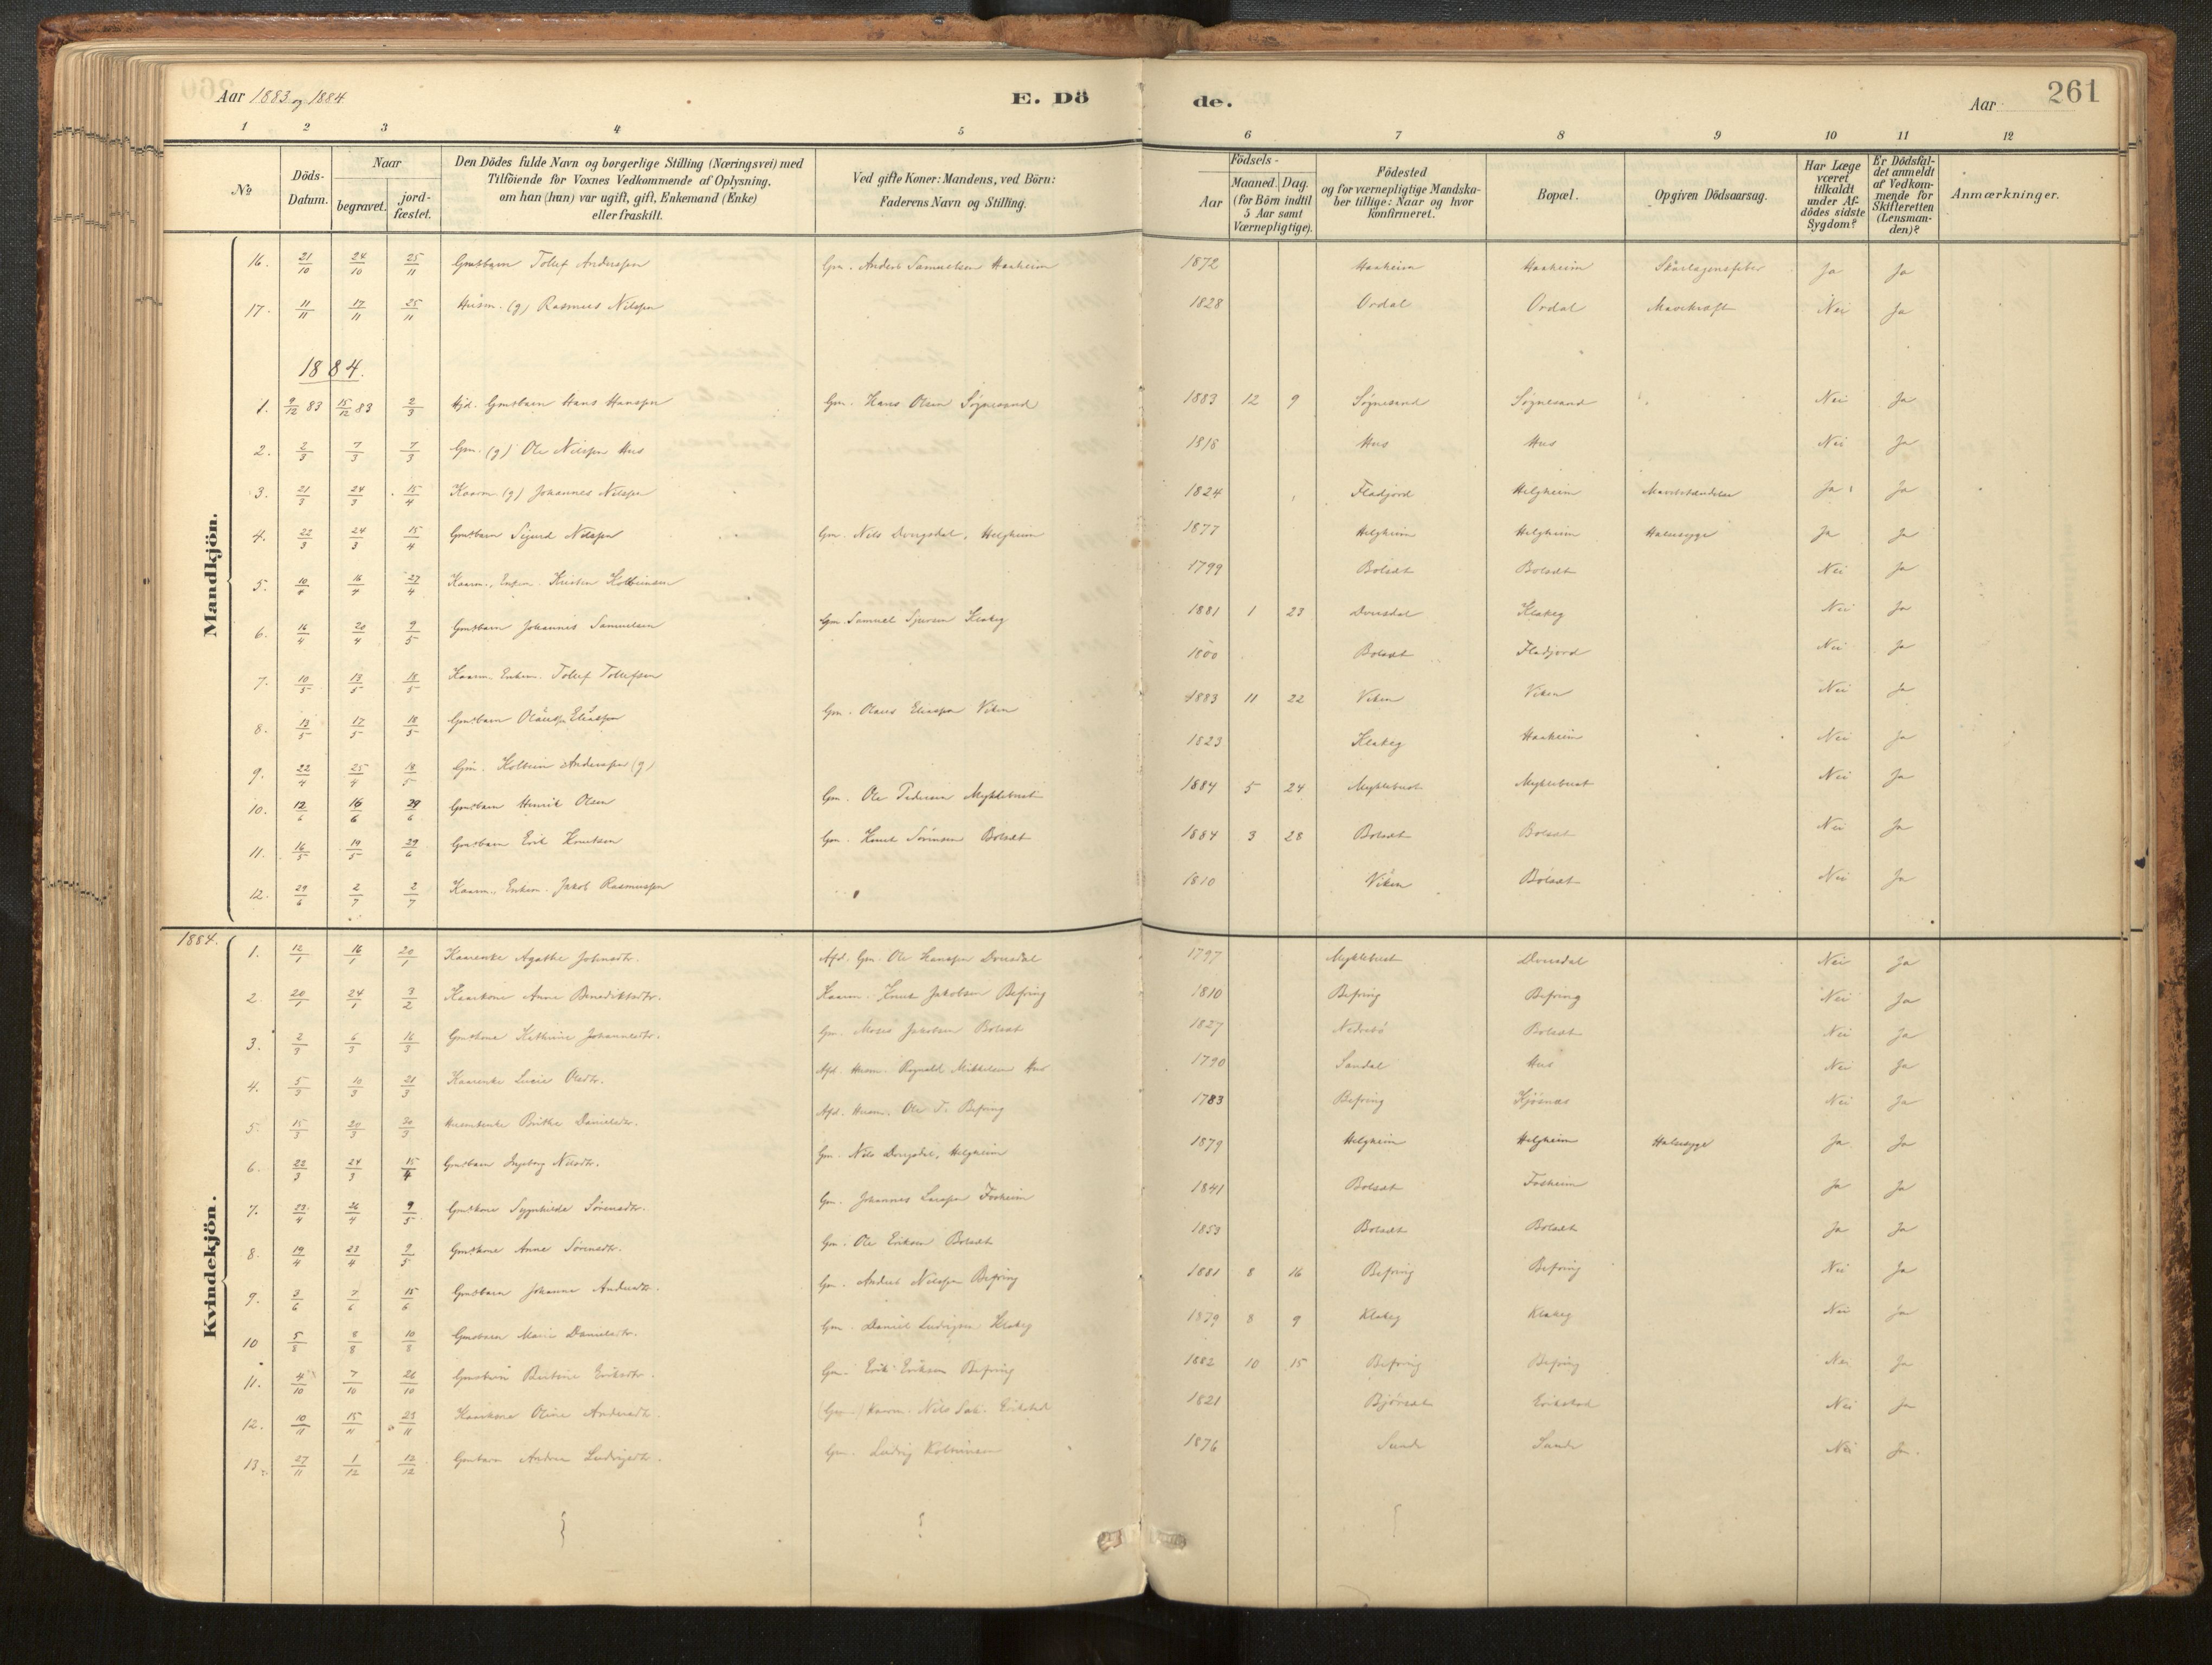 Aar 1883 og 1884 E. Dö de. Aar 261
1 2 3 4 5 6 7 8 9 10 11 12
No Döds-Datum. Naar begravet. jordfæstet. Den Dödes fulde Navn og borgerlige Stilling (Næringsvei) med Tilföiende for Voxnes Vedkommende af Oplysning, om han (hun) var ugift, gift, Enkemand (Enke) eller fraskilt. Ved gifte Koner: Mandens, ved Börn: Faderens Navn og Stilling. Aar Födsels- Maaned. Dag. (for Börn indtil 5 Aar samt Værnepligtige). Födested og for værnepligtige Mandskaber tillige: Naar og hvor konfirmeret. Bopæl. Opgiven Dödsaarsag. Har Læge været tilkaldt under Afdödes sidste Sygdom? Er Dödsfaldet anmeldt af Vedkommende for Skifteretten (Lensmanden)? Anmærkninger.
Mandkjön.
16. 21/10 24/10 25/11 Gmsbarn Tollef Anderssen Gm. Anders Samuelsen Haaheim 1872 Haaheim Haaheim Skarlagensfeber Ja Ja
17. 11/11 17/11 25/11 Husm. (g) Rasmus Nilssen 1828 Ordal Ordal Mavekræft Nei Ja
1884.
1. 9/12 83 15/12 83 2/3 Hjd. Gmsbarn Hans Hanssen Gm. Hans Olsen Søgnesand 1883 12 9 Søgnesand Søgnesand Nei Ja
2. 2/3 7/3 7/3 Gm. (g) Ole Nilssen Hus 1818 Hus Hus Nei Ja
3. 21/3 24/3 15/4 Kaarm. (g) Johannes Nilssen 1824 Fladjord Helgheim Ja Ja
4. 22/3 24/3 15/4 Gmsbarn Sigurd Nilssen Gm. Nils Dvergsdal, Helgheim 1877 Helgheim Helgheim Halssyge Ja Ja
5. 10/4 16/4 27/4 Kaarm., Enkem. Kristen Kolbeinsen 1799 Bolsæt Bolsæt Nei Ja
6. 16/4 20/4 9/5 Gmsbarn Johannes Samuelsen Gm. Samuel Sjursen Klakeg 1881 1 23 Dvusdal Klakeg Nei Ja
7. 10/5 13/5 18/5 Kaarm. Enkem. Tollef Tollefsen 1800 Bolsæt Fladjord Nei Ja
8. 13/5 17/5 18/5 Gmsbarn Olaus Eliassen Gm. Olaus Eliassen Viken 1883 11 22 Viken Viken Nei Ja
9. 22/4 25/4 18/5 Gm. Kolbein Anderssen (g) 1823 Klakeg Haaheim Nei Ja
10. 12/6 16/6 29/6 Gmsbarn Henrik Olsen Gm. Ole Pedersen Myklebust 1884 5 24 Myklebust Myklebust Nei Ja
11. 16/5 19/5 29/6 Gmsbarn Erik Knutsen Gm. Knut Sørensen Bolsæt 1884 3 28 Bolsæt Bolsæt Nei Ja
12. 29/6 2/7 2/7 Kaarm. Enkem. Jakob Rasmussen 1810 Viken Bolsæt Nei Ja
Kvindekjön.
1884.
1. 12/1 16/1 20/1 Kaarenke Agathe Johnsdtr. Afd. Gm. Ole Hanssen Dvusdal 1797 Myklebust Dvusdal Nei Ja
2. 20/1 24/1 3/2 Kaarkone Anne Benediktsdtr. Kaarm. Knut Jakobsen Befring 1810 Befring Befring Nei Ja
3. 2/3 6/3 16/3 Gmskone Kathrine Johannesdtr. Gm. Moses Jakobsen Bolsæt 1827 Nedrebö Bolsæt Nei Ja
4. 5/3 10/3 21/3 Kaarenke Lucie Olsdtr. Afd. Husm. Rognald Mikkelsen Hus 1790 Sandal Hus Nei Ja
5. 15/3 20/3 30/3 Husmdsenke Brithe Danielsdtr. Afd. Husm. Ole T. Befring 1783 Befring Kjösnes Nei Ja
6. 22/3 24/3 15/4 Gmsbarn Ingeborg Nilsdtr. Gm. Nils Dvergsdal, Helgheim 1879 Helgheim Helgheim Halssyge Ja Ja
7. 23/4 26/4 9/5 Gmskone Sygnhilde Sørensdtr. Gm. Johannes Larssen Fosheim 1841 Bolsæt Fosheim Ja Ja
8. 19/4 23/4 9/5 Gmskone Anne Sørensdtr. Gm. Ole Eriksen Bolsæt 1853 Bolsæt Bolsæt Ja Ja
9. 3/6 7/6 15/6 Gmsbarn Johanne Andersdtr. Gm. Anders Nilssen Befring 1881 8 16 Befring Befring Nei Ja
10 5/8 8/8 10/8 Gmsbarn Marie Danielsdtr. Gm. Daniel Ludvigsen Klakeg 1879 8 9 Klakeg Klakeg Nei Ja
11. 4/10 7/10 26/10 Gmsbarn Bertine Eriksdtr. Gm. Erik Eriksen Befring 1882 10 15 Befring Befring Nei Ja
12. 10/11 15/11 23/11 Kaarkone Oline Andersdtr. (Gm.) Kaarm. Nils Sal. Erikstad 1821 Bjørsæt Erikstad Nei Ja
13. 27/11 1/12 12/12 Gmsbarn Andrea Ludvigsdtr. Gm. Ludvig Kolbeinsen 1876 Sunde Sunde Nei Ja.